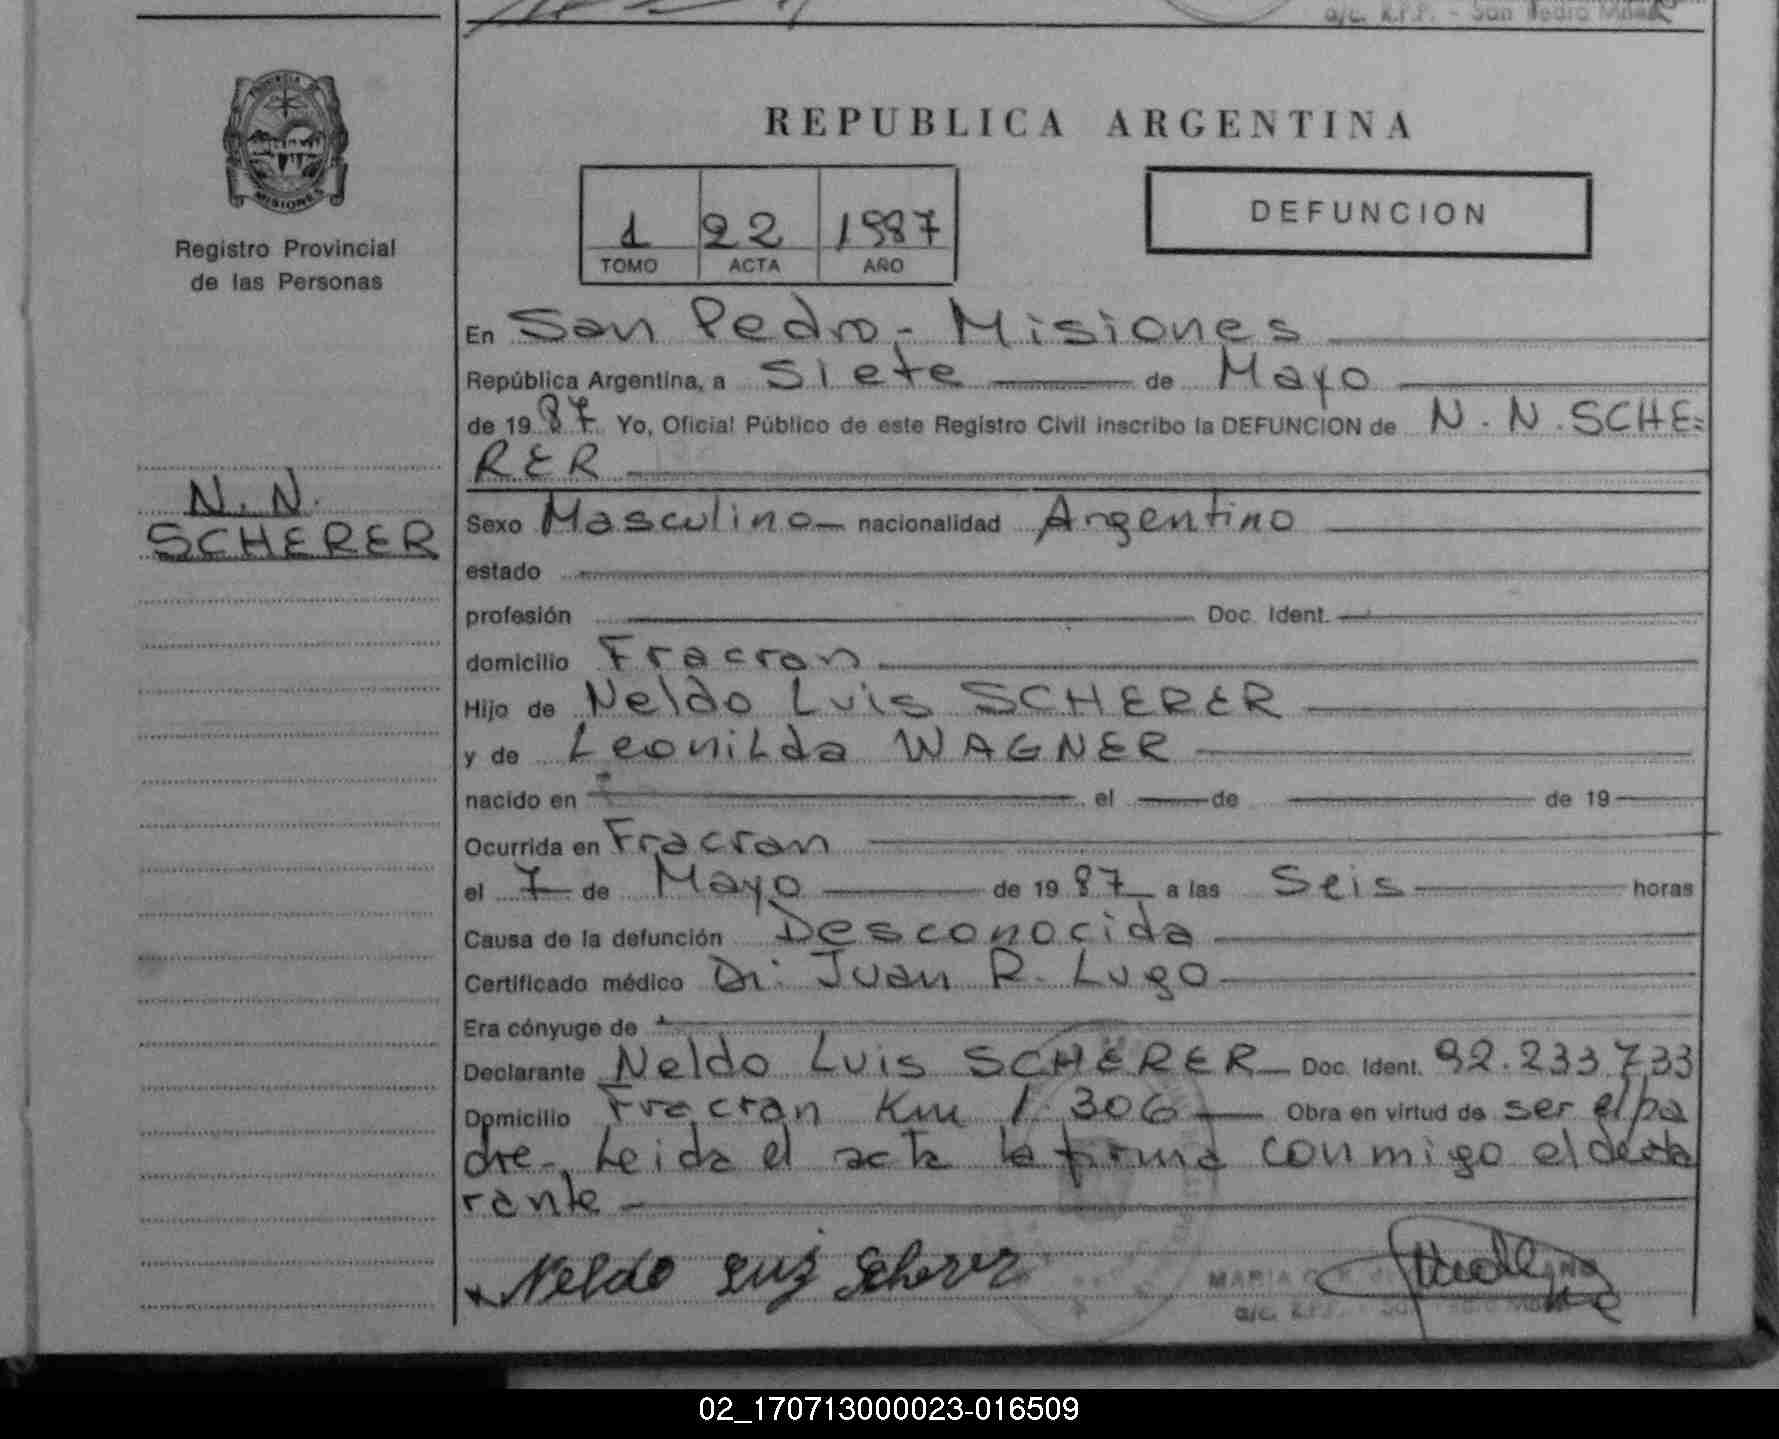 a/c. R.P.P. - San Pedro Mnes
PROVINCIA DE
MISIONES
Registro Provincial
de las Personas
REPUBLICA ARGENTINA
1 22 1987
TOMO ACTA AÑO
DEFUNCION
En San Pedro - Misiones
República Argentina, a Siete de Mayo
de 1987 Yo, Oficial Público de este Registro Civil inscribo la DEFUNCION de N. N. SCHE=
RER
N. N.
SCHERER
Sexo Masculino nacionalidad Argentino
estado
profesión Doc. Ident.
domicilio Fracran
Hijo de Neldo Luis SCHERER
y de Leonilda WAGNER
nacido en el de de 19
Ocurrida en Fracran
el 7 de Mayo de 1987 a las Seis horas
Causa de la defunción Desconocida
Certificado médico Dr: Juan R. Lugo
Era cónyuge de
Declarante Neldo Luis SCHERER Doc. Ident. 92.233.733
Domicilio Fracran Km 1.306 Obra en virtud de ser el pa
dre-. Leida el acta la firma conmigo el decla
rante
Neldo Luis Scherer
MARIA
a/c. R.P.P. - San Pedro Mnes
02_170713000023-016509